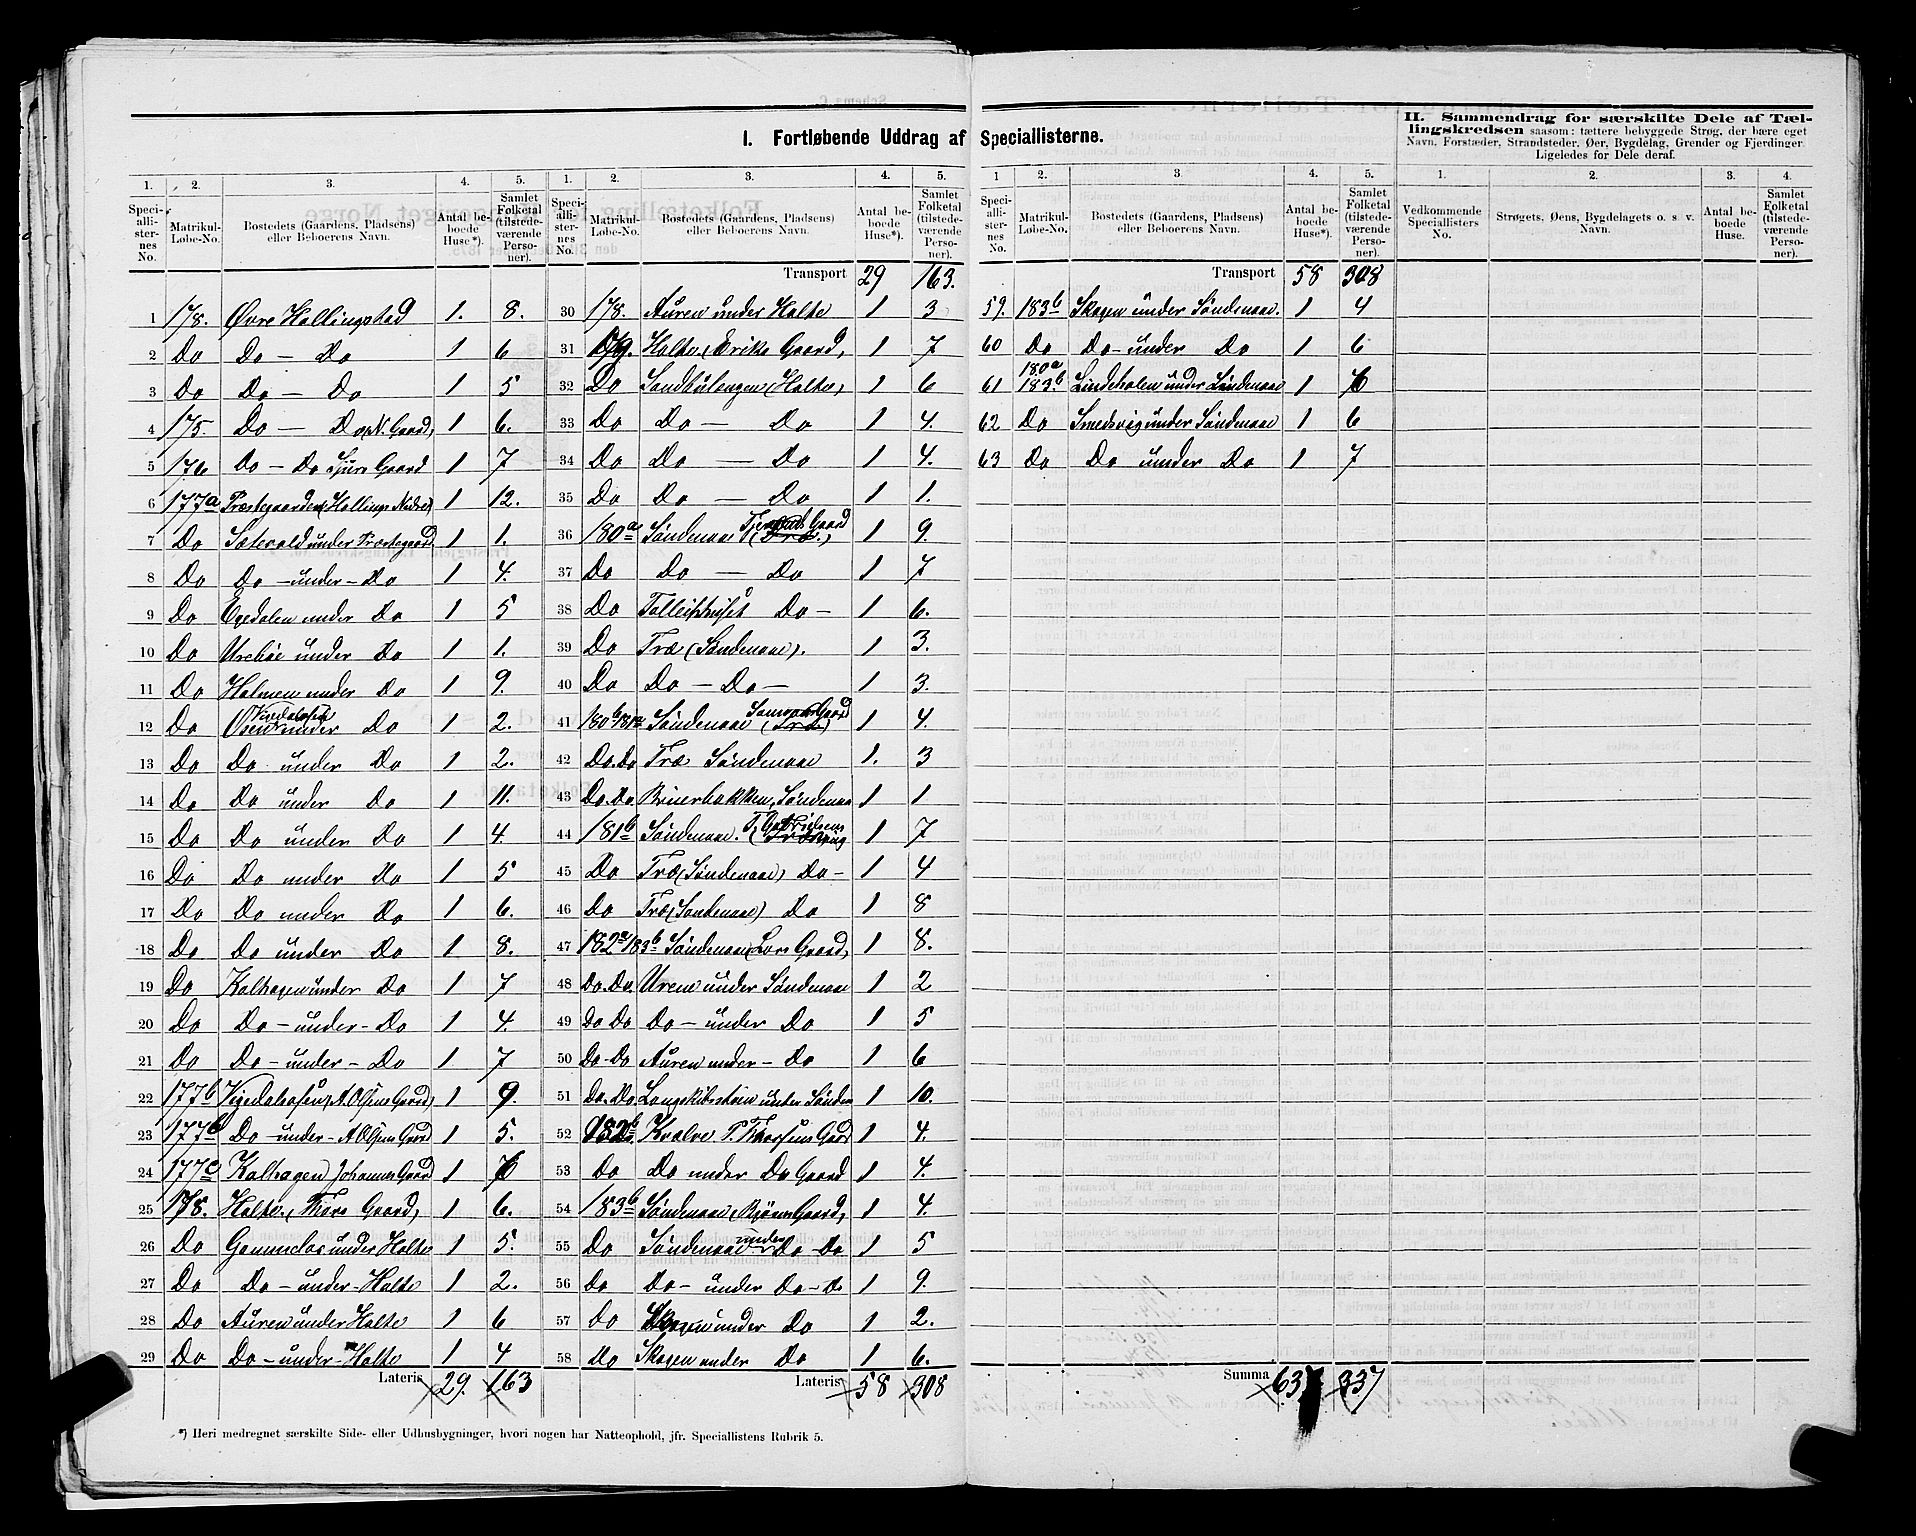 I. Fortløbende Uddrag af Speciallisterne.
II. Sammendrag for særskilte Dele af Tæl-
lingskredsen saasom: tættere bebyggede Strøg, der bære eget
Navn, Forstæder, Strandsteder, Øer, Bygdelag, Grender og Fjerdinger.
Ligeledes for Dele deraf.
1. 2. 3. 4. 5. 1. 2. 3. 4. 5. 1 2. 3. 4. 5. 1. 2. 3. 4.
Speciallisternes No. Matrikul-Løbe-No. Bostedets (Gaardens, Pladsens) eller Beboerens Navn. Antal beboede Huse*). Samlet Folketal (tilstedeværende Personer).
Speciallisternes No. Matrikul-Løbe-No. Bostedets (Gaardens, Pladsens) eller Beboerens Navn. Antal beboede Huse*). Samlet Folketal (tilstedeværende Personer).
Speciallisternes No. Matrikul-Løbe-No. Bostedets (Gaardens, Pladsens) eller Beboerens Navn. Antal beboede Huse*). Samlet Folketal (tilstedeværende Personer).
Vedkommende Speciallisters No. Strøgets, Øens, Bygdelagets o. s. v. Navn. Antal beboede Huse. Samlet Folketal (tilstedeværende Personer).
1 178. Øvre Hallingstad 1. 8.
2 Do Do - Do 1 6
3 Do Do - Do 1 5
4 175. Do - Do N. Gaard, 1 6.
5 176 Do - Do Sjurs Gaard 1 7
6 177a Præstegaarden, Hallings Nedre) 1 12.
7 Do Sætevold under Præstegaard 1 1.
8 Do Do -under- Do 1 4.
9 Do Egedalen under Do 1 5
10 Do Urebøe under Do 1 1.
11 Do Holmen under Do 1 9.
12 Do Osen under Do 1 2.
13 Do Do under Do 1 2.
14 Do Do under Do 1 11.
15 Do Do under Do 1 4.
16 Do Do under Do 1 5
17 Do Do under Do 1 6.
18 Do Do under Do 1 8.
19 Do Kalhagen under Do 1 7
20 Do Do -under- Do 1 4.
21 Do Do -under- Do 1 7
22 177b Vigedalsosen, A. Olsens Gaard) 1 9.
23 177b Do -under- A Olsens Gaard 1 5.
24 177c Kalhagen, Johannes Gaard 1
25 178. Halte, Thore Gaard, 1 6.
26 Do Gammelas under Halte 1 5.
27 Do Do -under- Halte 1 2.
28 Do Auren under Halte 1 6
29 Do Do -under- Halte 1 4
Lateris 29. 163
Transport 29 163.
30 178. Auren under Halte 1 3
31 179. Halte, Eriks Gaard, 1 7
32 Do Sandbulengen (Halte, 1 6
33 Do Do - Do 1 4.
34 Do Do - Do 1 4.
35 Do Do - Do 1 1.
36 180a Søndenaae Gaard 1 9.
37 Do Do - Do 1 7
38 Do Tolleifshuset Do - 1 6.
39 Do Træ (Søndenaae). 1 3.
40 Do Do - Do - 1 3.
41 180b Søndenaae Gaard 1 4.
42 Do. Do Træ Søndenaae 1. 3
43 Do. Do. Bruerbakken, Søndenaa 1 1
44 181b Søndenaae. T. 1 7
45 Do Træ (Søndenaae) Do - 1 4
46 Do Træ (Søndenaae) Do 1 8
47 182a 183b Søndenaae (Lars Gaard, 1 8.
48 Do. Do. Uren under Søndenaae 1 2
49 Do Do Do - under Do 1 5
50 Do-Do Auren under- Do 1 6
51 Do. Do Langskibsstøen under Sønden 1 10.
52 182b Kvalve P. Gaard 1 4.
53 Do Do under Do Gaard 1 4.
54 183b Søndenaae, Bjørns Gaard, 1 4.
55 Do Søndenaae under Do - Do 1 5
56 Do Do - under Do - Do 1 9.
57 Do Skogen under Do 1 2.
58 Do Skogen under Do 1 6.
Lateris 58 308
Transport 58 308
59. 183b Skogen under Søndenaae. 1 4
60 Do Do - under Do 1 6
61 180a 183b Lindeholen under Søndenaae 1
62 Do Smedsvig under Søndenaae 1 6
63 Do Do under Do 1 7
Summa 63 337
*) Heri medregnet særskilte Side- eller Udhusbygninger, hvori nogen har Natteophold, jfr. Speciallistens Rubrik 5.